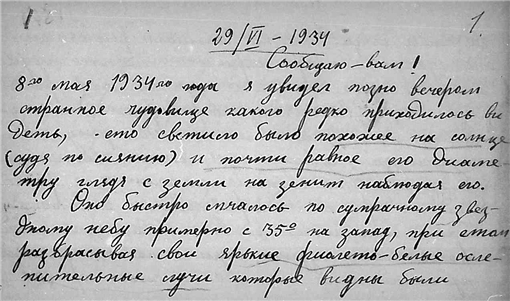 1.
29/VI – 1934
Сообщаю – вам!
8го мая 1934го года я увидел поздно вечером
странное чудовище какого редко приходилось ви
деть, это светило было похожее на солнце
(судя по сиянию) и почти равное его диаме-
тру глядя с земли на зенит наблюдая его.
Оно быстро мчалось по сумрачному звез-
дному небу примерно с 35° на запад, при этом
разбрасывая свои яркие фиолето-белые осле-
пительные лучи которые видны были